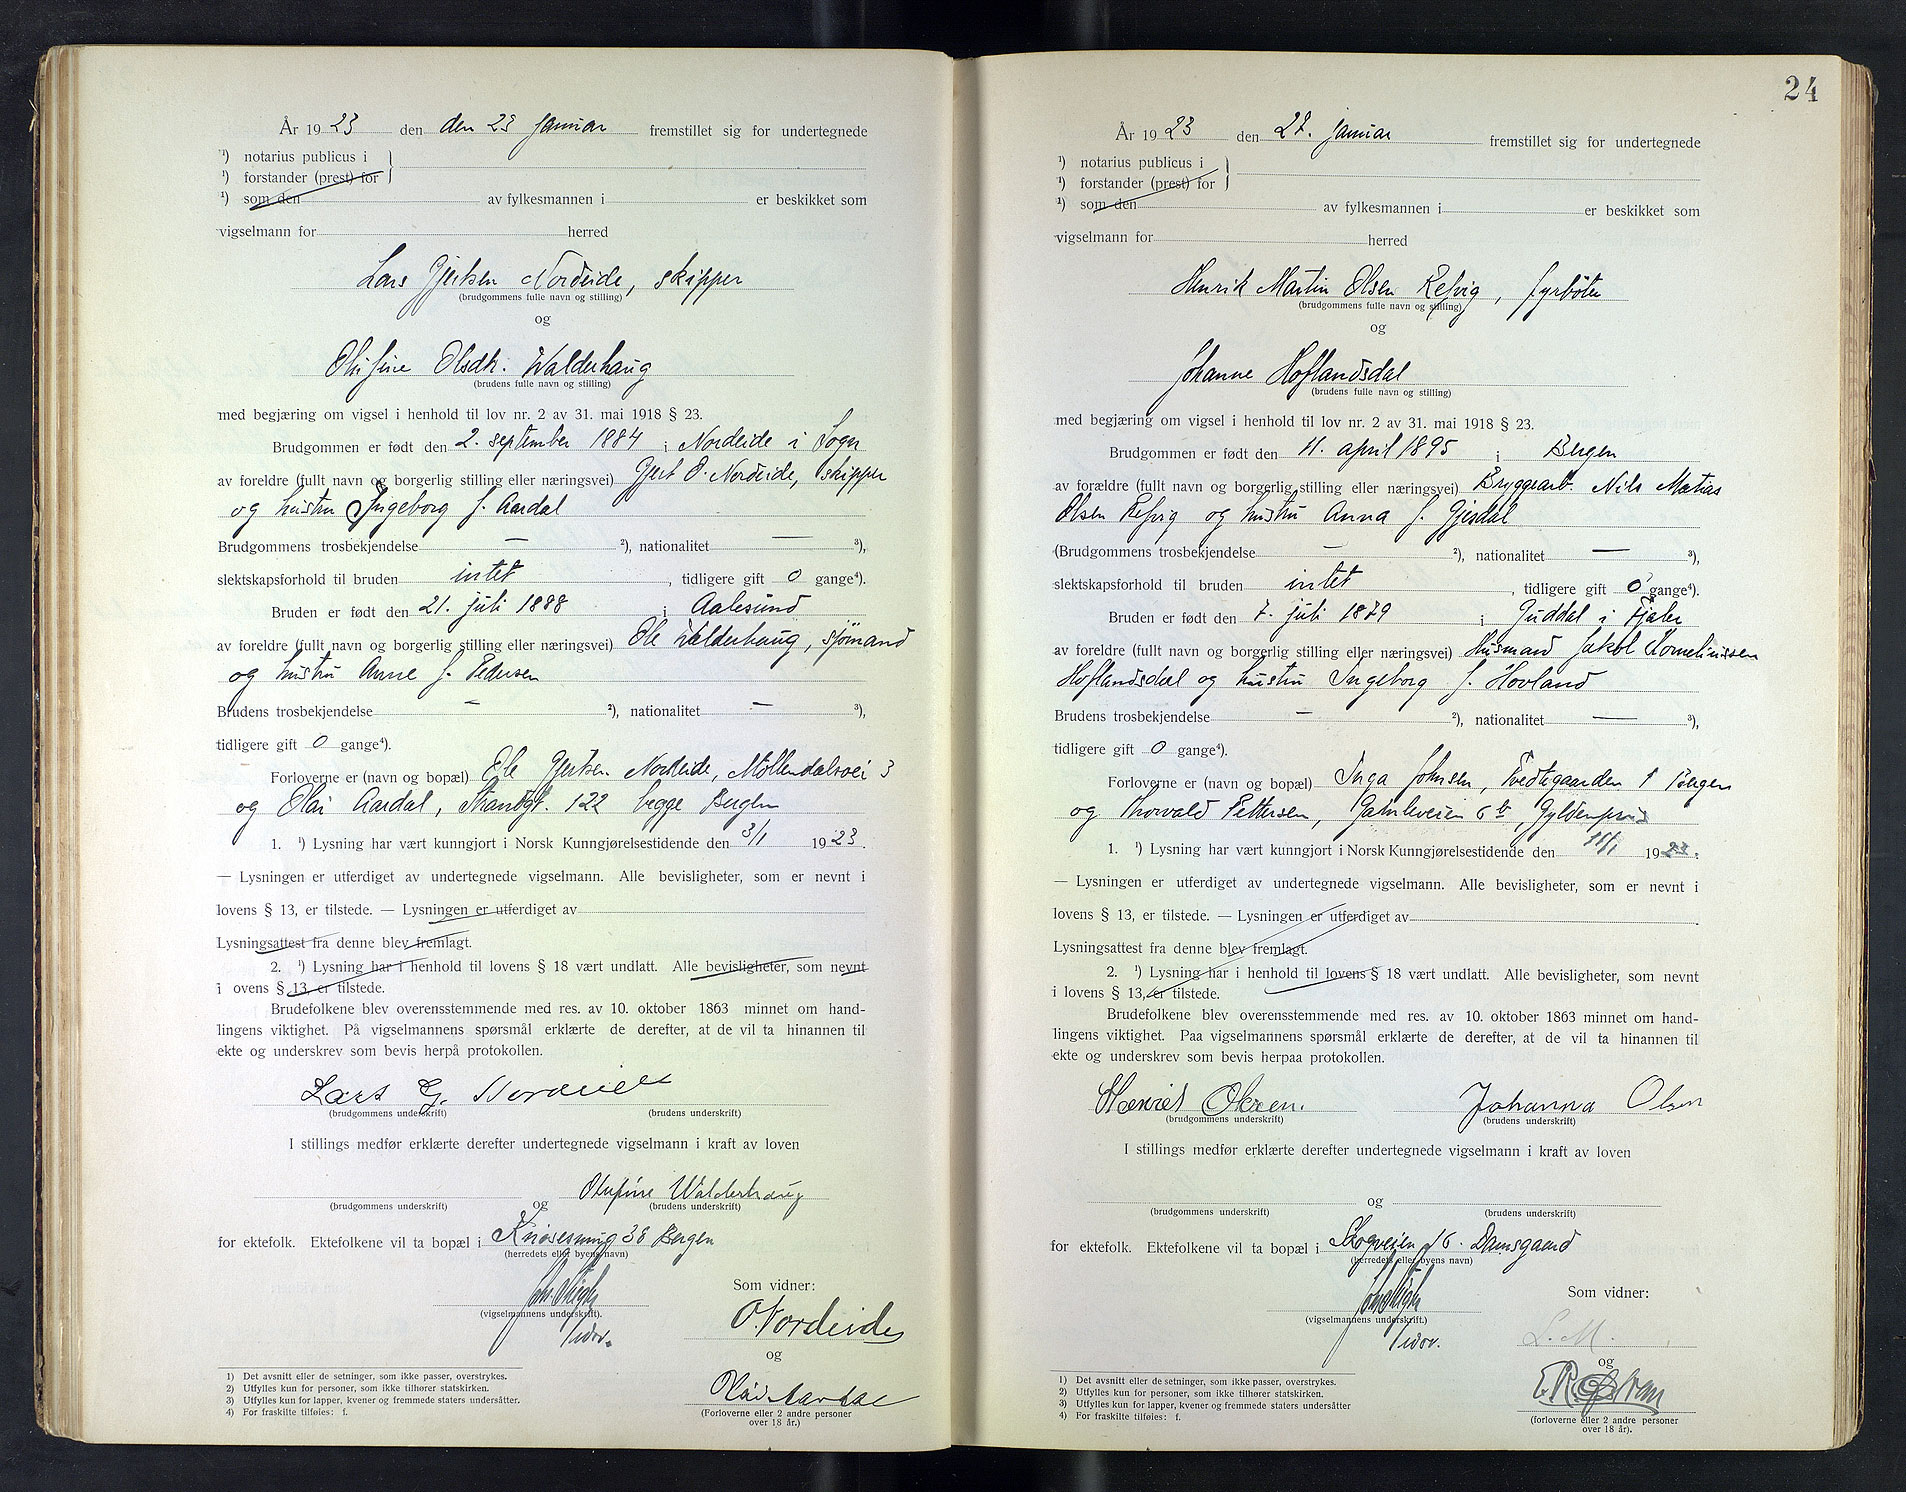 År 1923 den den 23 januar fremstillet sig for undertegnede
¹) notarius publicus i
¹) forstander (prest) for
¹) som den av fylkesmannen i er beskikket som
vigselmann for herred
Lars Gjertsen Nordeide, skipper
(brudgommens fulle navn og stilling)
og
Olufine Olsdtr. Walderhaug
(brudens fulle navn og stilling)
med begjæring om vigsel i henhold til lov nr. 2 av 31. mai 1918 § 23.
Brudgommen er født den 2. september 1884 i Nordeide i Sogn
av foreldre (fullt navn og borgerlig stilling eller næringsvei) Gjert O. Nordeide, skipper
og hustru Ingeborg f. Aardal
Brudgommens trosbekjendelse — ²), nationalitet — ³),
slektskapsforhold til bruden intet, tidligere gift 0 gange⁴).
Bruden er født den 21. juli 1888 i Aalesund
av foreldre (fullt navn og borgerlig stilling eller næringsvei) Ole Walderhaug, sjømand
og hustru Anne f. Pedersen
Brudens trosbekjendelse — ²), nationalitet — ³),
tidligere gift 0 gange⁴).
Forloverne er (navn og bopæl) Ole Gjertsen Nordeide, Möllendalsvei 3
og Olai Aardal, Strandgt. 122 begge Bergen
1. ¹) Lysning har vært kunngjort i Norsk Kunngjørelsestidende den 3/1 1923.
— Lysningen er utferdiget av undertegnede vigselmann. Alle bevisligheter, som er nevnt i
lovens § 13, er tilstede. — Lysningen er utferdiget av
Lysningsattest fra denne blev fremlagt.
2. ¹) Lysning har i henhold til lovens § 18 vært undlatt. Alle bevisligheter, som nevnt
i ovens § 13, er tilstede.
Brudefolkene blev overensstemmende med res. av 10. oktober 1863 minnet om hand-
lingens viktighet. På vigselmannens spørsmål erklærte de derefter, at de vil ta hinannen til
ekte og underskrev som bevis herpå protokollen.
Lars G. Nordeide
(brudgommens underskrift) (brudens underskrift)
I stillings medfør erklærte derefter undertegnede vigselmann i kraft av loven
og Olufine Walderhaug
(brudgommens underskrift) (brudens underskrift)
for ektefolk. Ektefolkene vil ta bopæl i Knøsesmug 38 Bergen
(herredets eller byens navn)
Som vidner:
(vigselmannens underskrift).
O. Nordeide
og
Olai Aardal
(Forloverne eller 2 andre personer
over 18 år.)
1) Det avsnitt eller de setninger, som ikke passer, overstrykes.
2) Utfylles kun for personer, som ikke tilhører statskirken.
3) Utfylles kun for lapper, kvener og fremmede staters undersåtter.
4) For fraskilte tilføies: f.
24
År 1923 den 27. januar fremstillet sig for undertegnede
¹) notarius publicus i
¹) forstander (prest) for
¹) som den av fylkesmannen i er beskikket som
vigselmann for herred
Henrik Martin Olsen Refvig, fyrbøter
(brudgommens fulle navn og stilling)
og
Johanne Hoflandsdal
(brudens fulle navn og stilling)
med begjæring om vigsel i henhold til lov nr. 2 av 31. mai 1918 § 23.
Brudgommen er født den 11. april 1895 i Bergen
av forældre (fullt navn og borgerlig stilling eller næringsvei) Bryggearb. Nils Matias
Olsen Refvig og hustru Anna f. Gjesdal
(Brudgommens trosbekjendelse — ²), nationalitet — ³),
slektskapsforhold til bruden intet, tidligere gift 0 gange⁴).
Bruden er født den 7. juli 1879 i Guddal i Fjaler
av foreldre (fullt navn og borgerlig stilling eller næringsvei) Husmand Jakob Korneliussen
Hoflandsdal og hustru Ingeborg f. Hovland
Brudens trosbekjendelse — ²), nationalitet — ³),
tidligere gift 0 gange⁴).
Forloverne er (navn og bopæl) Inga Johnsen, Tvedtegaarden 1 Bergen
og Thorvald Pettersen, Gamleveien 6 b, Gyldenpris
1. ¹) Lysning har vært kunngjort i Norsk Kunngjørelsestidende den 11/1 1923.
— Lysningen er utferdiget av undertegnede vigselmann. Alle bevisligheter, som er nevnt i
lovens § 13, er tilstede. — Lysningen er utferdiget av
Lysningsattest fra denne blev fremlagt.
2. ¹) Lysning har i henhold til lovens § 18 vært undlatt. Alle bevisligheter, som nevnt
i lovens § 13, er tilstede.
Brudefolkene blev overensstemmende med res. av 10. oktober 1863 minnet om hand-
lingens viktighet. Paa vigselmannens spørsmål erklærte de derefter, at de vil ta hinannen til
ekte og underskrev som bevis herpaa protokollen.
Henrik Olsen. Johanna Olsen
(brudgommens underskrift) (brudens underskrift)
I stillings medfør erklærte derefter undertegnede vigselmann i kraft av loven
og
(brudgommens underskrift) (brudens underskrift)
for ektefolk. Ektefolkene vil ta bopæl i Skogveien 16. Damsgaard
(herredets eller byens navn)
Som vidner:
(vigselmannens underskrift.)
L. M.
og
(forloverne eller 2 andre personer
over 18 år).
1) Det avsnitt eller de setninger, som ikke passer, overstrykes.
2) Utfylles kun for personer, som ikke tilhører statskirken.
3) Utfylles kun for lapper, kvener og fremmede staters undersåtter
4) For fraskilte tilføies: f.